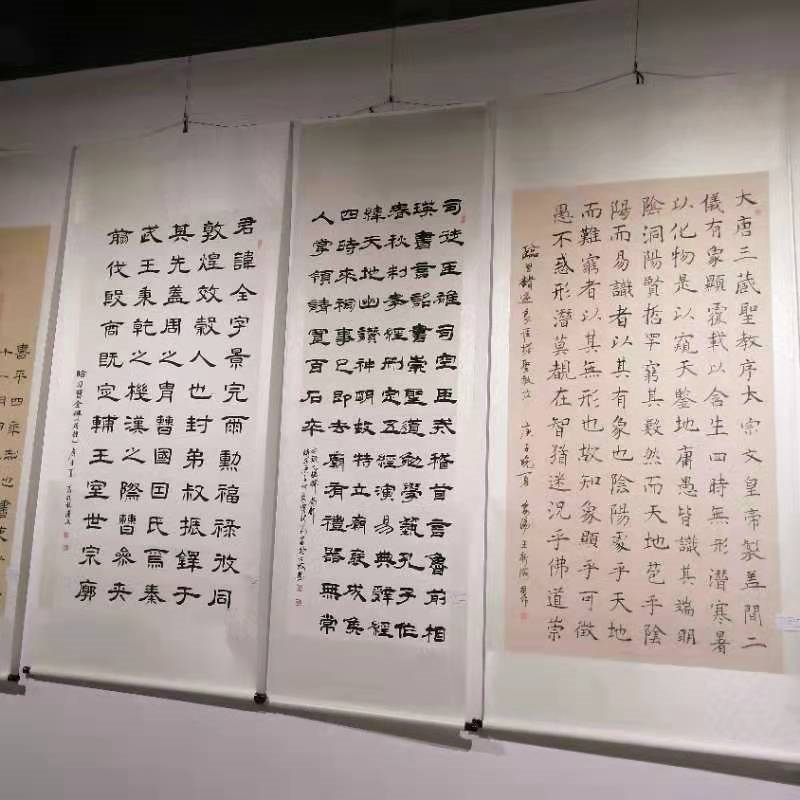 大唐三藏聖教序太宗文皇帝製蓋聞二
儀有象顯覆載以含生四時無形潛寒暑
以化物是以窺天鑒地庸愚皆識其端明
陰洞陽賢哲罕窮其數然而天地苞乎陰
陽而易識者以其有象也陰陽處乎天地
而難窮者以其無形也故知象顯乎可徵
愚不惑形潛莫覩在智猶迷況乎佛道崇
臨習褚遂良雁塔聖教序 庚子晚夏 安陽王新
司徒臣雄司空臣戒稽首言魯前相
瑛書言詔書崇聖道勉學藝孔子作
春秋制孝經刪定五經演易典辭經
緯天地幽讚神明故特立廟褒成侯
四時來祠事已即去廟有禮器無常
人掌領請置百石卒
君諱全字景完爾勳福祿攸同
敦煌效穀人也封弟叔振鐸于
其先蓋周之胄曹國因氏焉秦
武王秉乾之機漢之際曹參夾
翦伐殷商既定輔王室世宗廓
臨習曹全碑